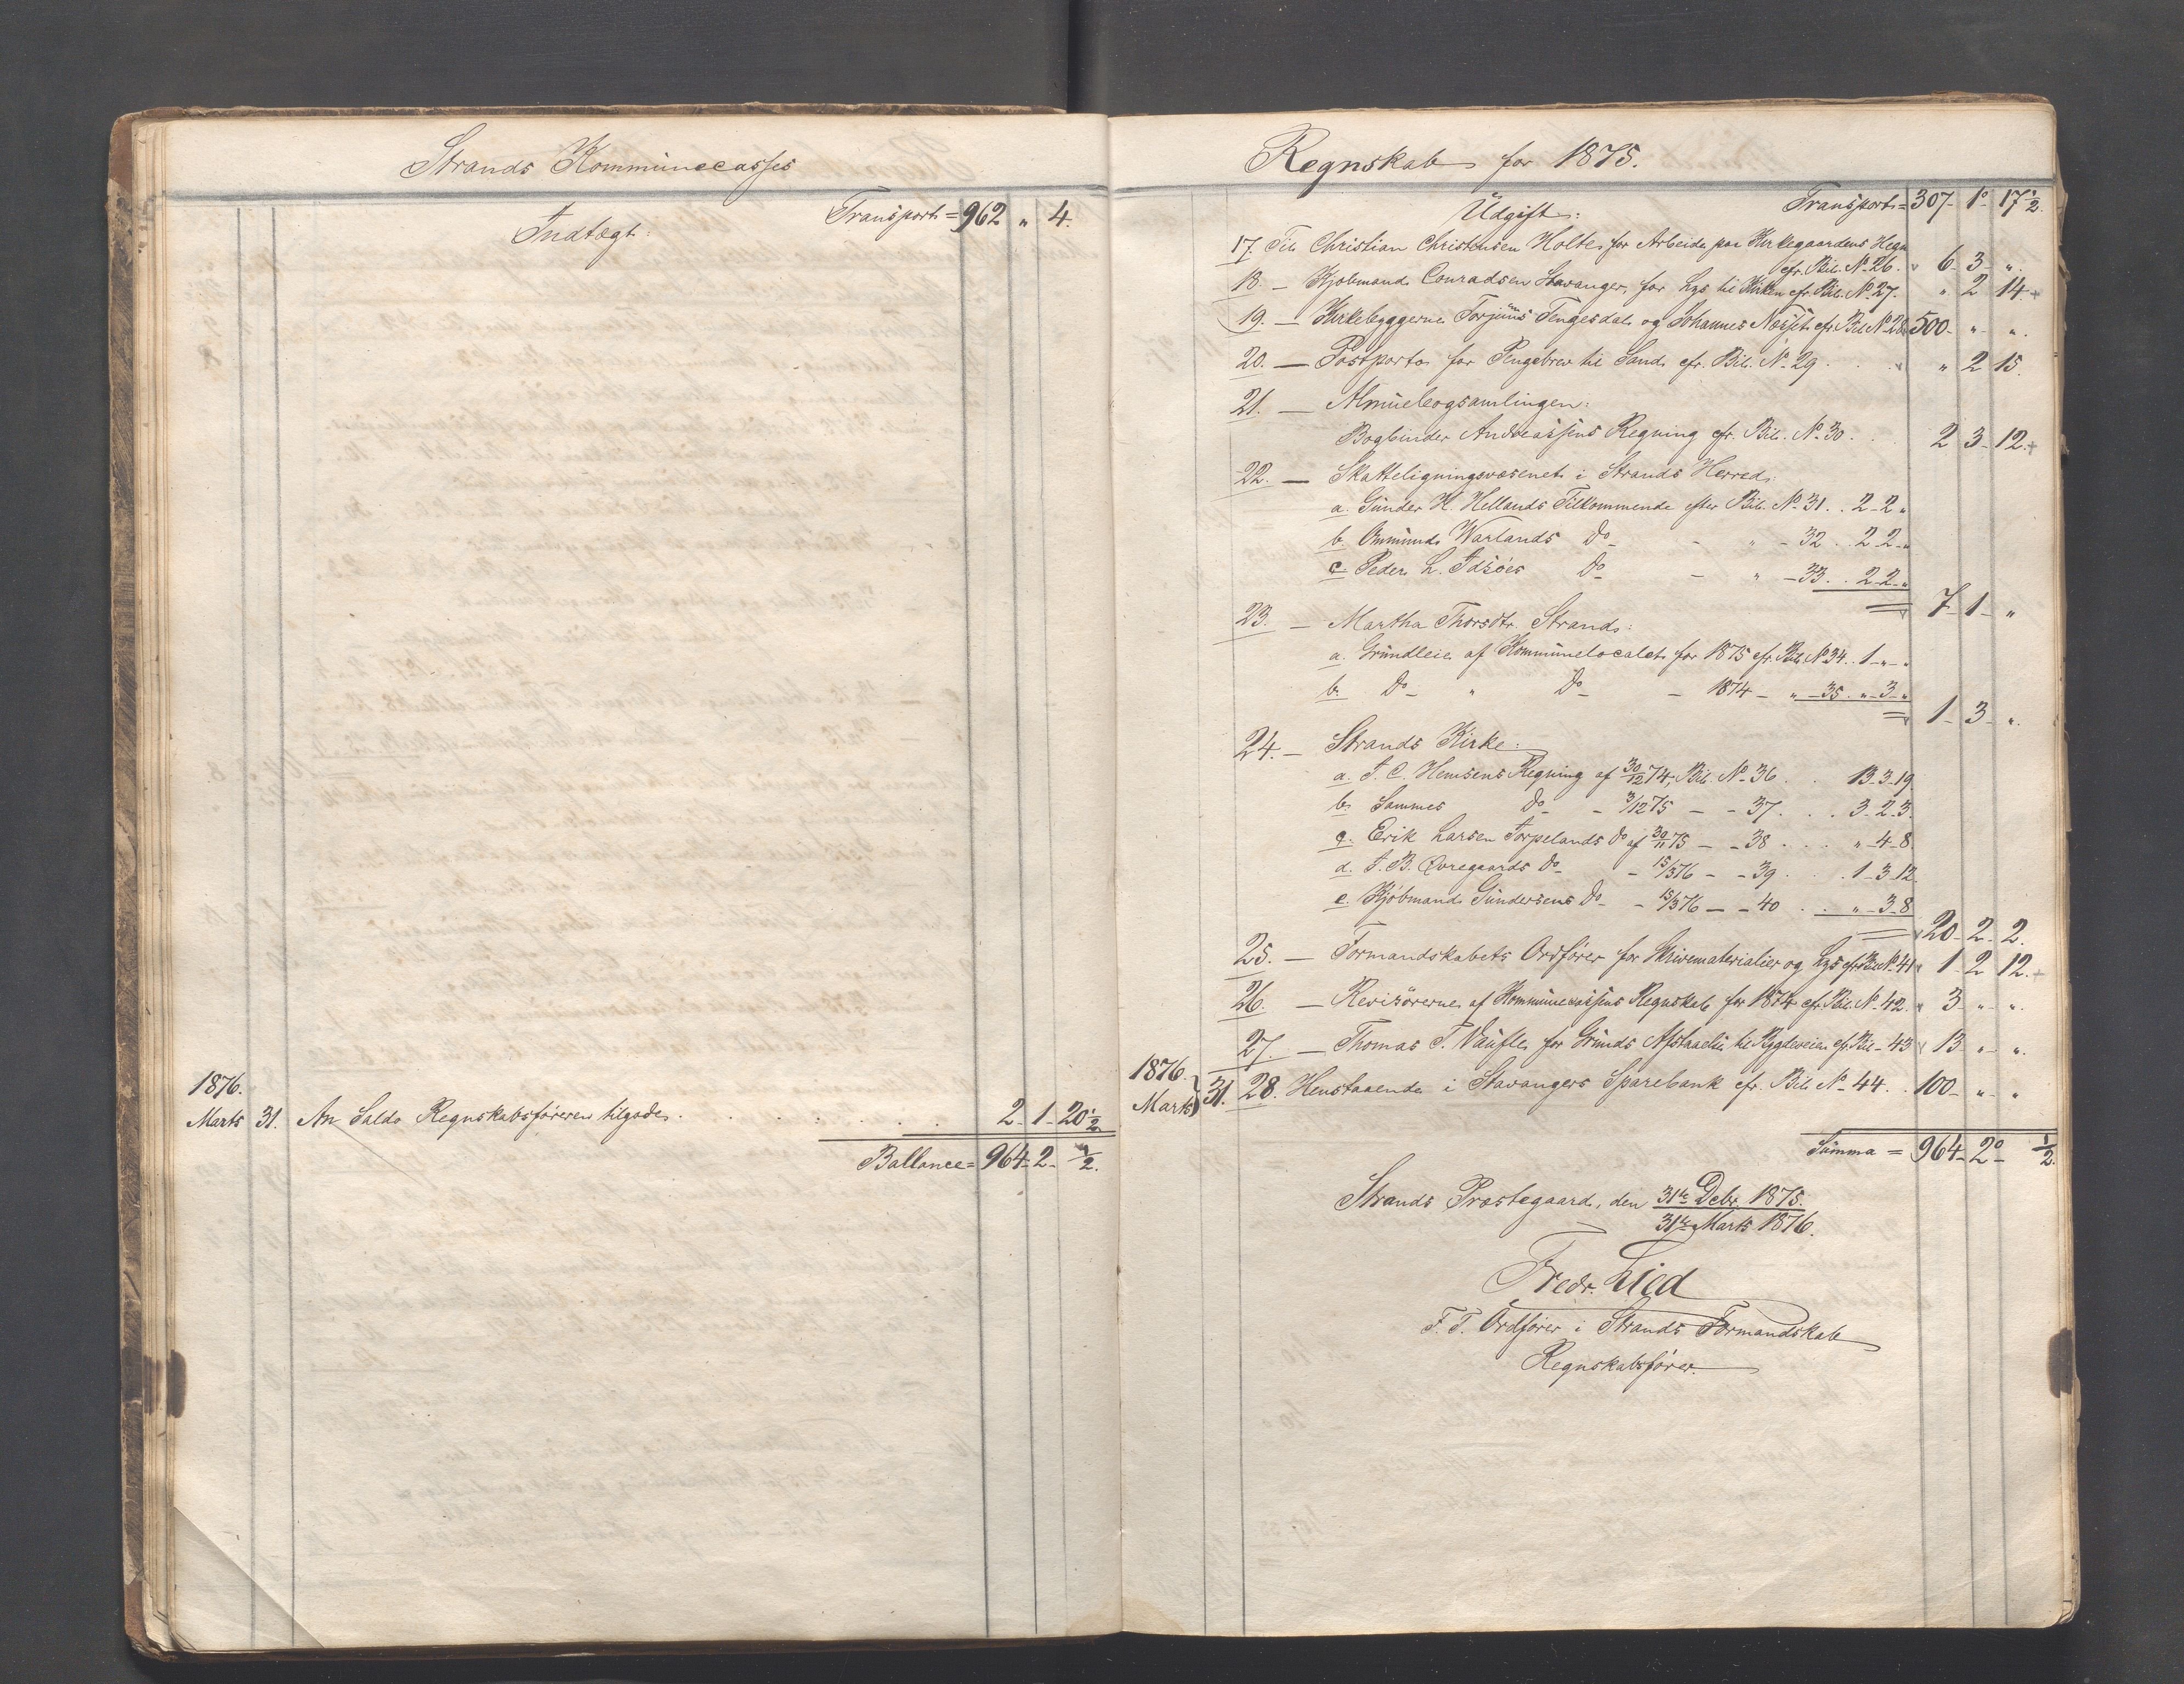 Strands Kommunecasses
Indtægt: Transport = 962 „ 4.
1876.
Marts 31. An Saldo Regnskabsføreren tilgode . . . . 2 - 1 - 20 1/2
Ballance = 964 - 2 - 1/2.
Regnskab for 1875.
Udgift: Transport = 307 - 1 - 17 1/2.
17. Til Christian Christensen Holte for Arbeide paa Kirkegaardens Hegn
cfr. Bil. No 26. 6 - 3 - „.
18. — Kjøbmand Conradsen Stavanger, for Lys til Kirken cfr. Bil. No 27. „ 2 14
19. — Kirkebyggerne Torjuus Tengesdal og Johannes Næsset cfr. Bil. No 28 500 - „ - „.
20. — Postporto for Pengebrev til Sand cfr. Bil. No 29 . . . „ 2 15.
21. — Almuebogsamlingen:
Bogbinder Andreassens Regning cfr. Bil. No 30 . . . 2 3 - 12.
22. — Skatteligningsvæsenet i Strands Herred:
a. Gunder H. Hellands Tilkommende efter Bil. No 31 . . 2 - 2 „
b. Ommund Warlands Do - „ - 32 . . 2 - 2 - „
c. Peder L. Idsöes Do - „ - 33 . . 2 - 2 - „
7 - 1 - „
23. — Martha Thorsdtr. Strand:
a. Grundleie af Kommunelocalet for 1875 cfr. Bil. No 34 . . 1 - „ - „
b. Do „ Do - 1874 - „ - 35 . „ - 3 - „
1 - 3 - „.
24. — Strands Kirke:
a. J. C. Hemsens Regning af 30/12 74, Bil. No 36 . . 13 - 3 - 19
b. Sammes Do - 3/12 75 — - 37 . . . 3 - 2 - 3.
c. Erik Larsen Torpelands Do af 30/11 75 — - 38 . . . . „ - 4 - 8
d. J. B. Qvregaards Do - 15/3 76 — - 39 . . . 1 - 3 - 12
e. Kjøbmand Gundersens Do - 15/3 76 — - 40 . . . „ - 3 - 8
20 - 2 - 2.
25. — Formandskabets Ordfører for Skrivematerialier og Lys cfr. Bil. No 41 1 - 2 12.
26. — Revisörerne af Kommunecassens Regnskab for 1874 cfr. Bil. No 42. 3 - „ - „.
27. — Thomas T. Vaufle for Grunds Afstaaelse til Bygdeveien cfr. Bil - 43 13 - „ - „.
1876.
Marts 31. 28. Henstaaende i Stavangers Sparebank cfr. Bil. No 44 . . 100 - „ - „
Summa = 964 - 2 - 1/2.
Strands Præstegaard, den 31te Debr. 1875.
31te Marts 1876.
Fredr. Lied
F. T. Ordfører i Strands Formandskab
Regnskabsfører.